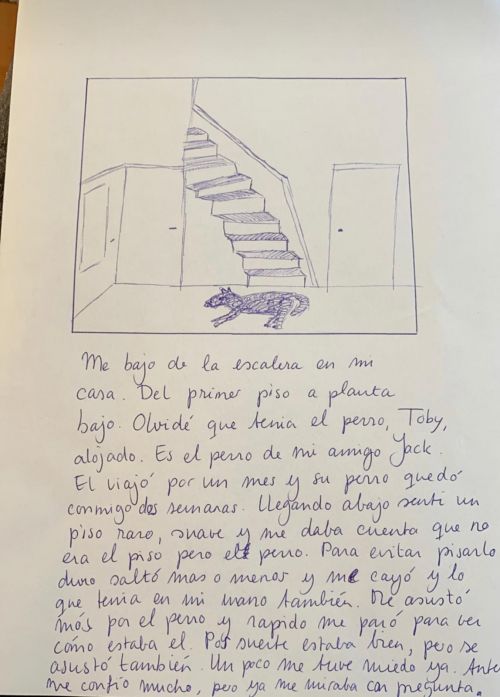 Me bajo de la escalera en mi
casa. Del primer piso a planta
bajo. Olvidé que tenia el perro, Toby,
alojado. Es el perro de mi amigo Jack.
El viajó por un mes y su perro quedó
conmigo dos semanas. Llegando abajo senti un
piso raro, suave y me daba cuenta que no
era el piso pero el perro. Para evitar pisarlo
duro saltó mas o menos y me cayó y lo
que tenia en mi mano también. Me asustó
más por el perro y rapido me paró para ver
cómo estaba el. Por suerte estaba bien, pero se
asustó también. Un poco me tuve miedo ya. Antes
me confio mucho, pero ya me miraba con pregunta.